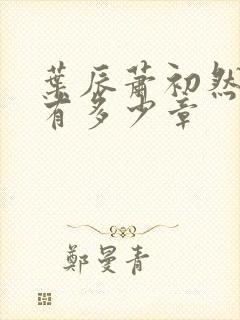 葉辰蕭初然
有多少章
鄭曼青